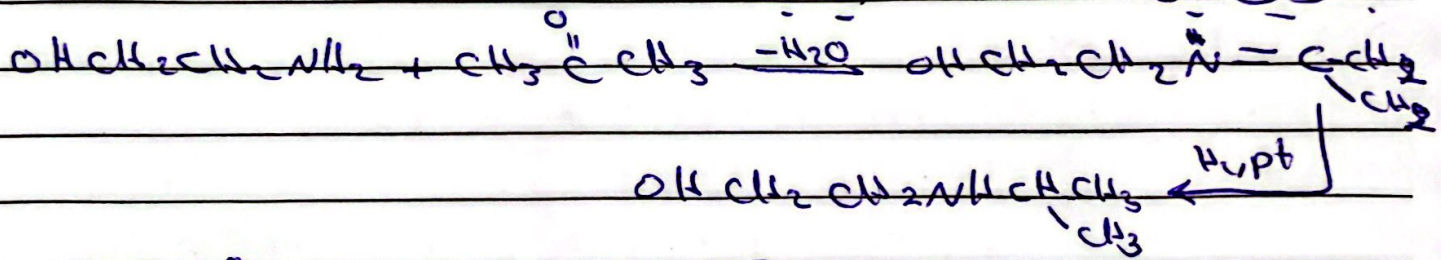 OHCH2CH2NH2 + CH3 C CH3 -H2O OHCH2CH2 N = C-CH2
O
CH2
H2, pt
OH CH2 CH2NH CH CH3
CH3